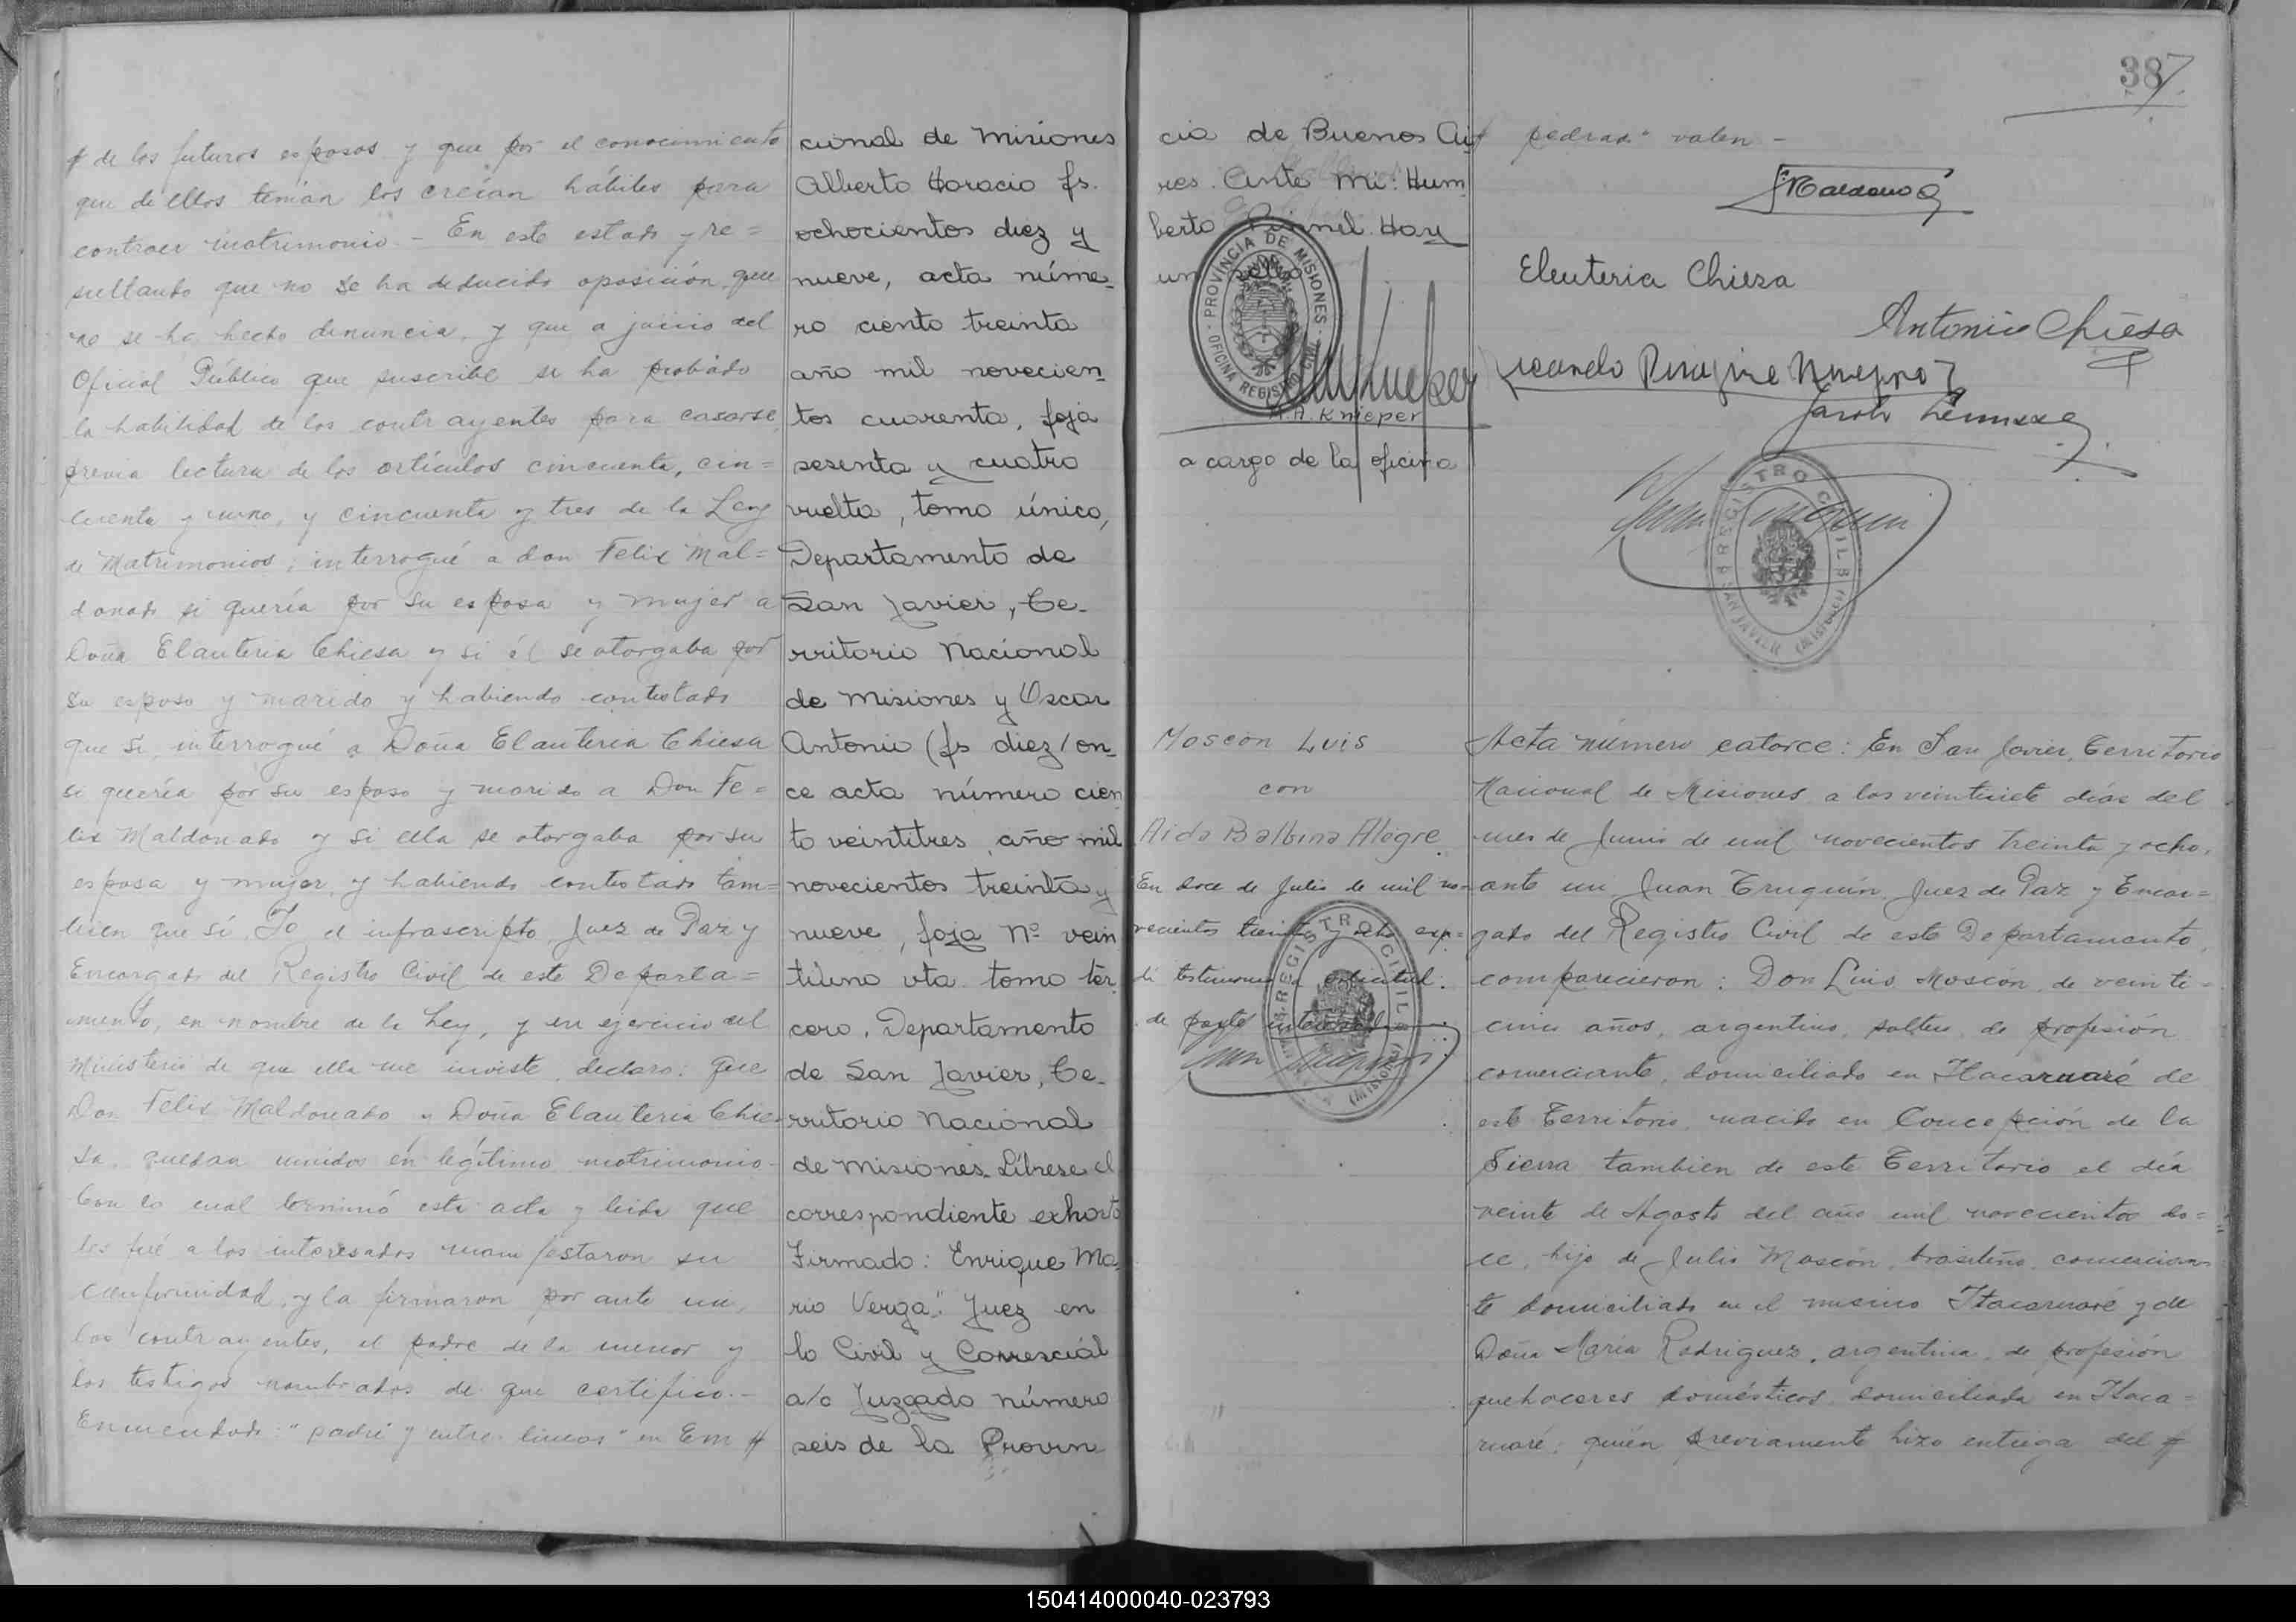 de los futuros esposos y que por el conocimiento
que de ellos tenían los creían hábiles para
contraer matrimonio - En este estado y re=
sultando que no se ha deducido oposición, que
no se ha hecho denuncia, y que a juicio del
Oficial Público que suscribe se ha probado
la habilidad de los contrayentes para casarse,
previa lectura de los artículos cincuenta, cin=
cuenta y uno, y cincuenta y tres de la Ley
de Matrimonios, interrogué a don Felix Mal=
donado si quería por su esposa y mujer a
Doña Elauteria Chiesa y si él se otorgaba por
su esposo y marido y habiendo contestado
que si, interrogué a Doña Elauteria Chiesa
si quería por su esposo y marido a Don Fe=
lix Maldonado y si ella se otorgaba por su
esposa y mujer, y habiendo contestado tam=
bien que sí, Yo el infrascripto Juez de Paz y
Encargado del Registro Civil de este Departa=
mento, en nombre de la Ley, y en ejercicio del
Ministerio de que ella me inviste, declaro: que
Don Felix Maldonado y Doña Elauteria Chie=
sa, quedan unidos en legítimo matrimonio.
Con lo cual terminó esta acta y leida que
les fué a los interesados manifestaron su
conformidad, y la firmaron por ante mi,
los contrayentes, el padre de la menor y
los testigos nombrados de que certifico.-
Enmendado: "padre" y entre lineas "en Em
cional de Misiones
Alberto Horacio fs.
ochocientos diez y
nueve, acta núme-
ro ciento treinta
año mil novecien-
tos cuarenta, foja
sesenta y cuatro
vuelta, tomo único,
Departamento de
San Javier, Te-
rritorio Nacional
de Misiones y Oscar
Antonio (fs diez/on-
ce acta número cien
to veintitres, año mil
novecientos treinta y
nueve, foja Nº vein
tiuno vta. tomo ter
cero, Departamento
de San Javier, Te-
rritorio Nacional
de Misiones. Líbrese el
correspondiente exhorto
Firmado: Enrique Ma-
rio Verga". Juez en
lo Civil y Comercial
a/c Juzgado número
seis de la Provin
387
cia de Buenos Ai
res. Ante mi: Hum
berto Hay
un sello
PROVINCIA DE MISIONES
OFICINA REGISTRO CIVIL
A. A. Knieper
a cargo de la oficina
pedrado" valen -
F. Maldonado
Eleuteria Chiesa
Antonio Chiesa
REGISTRO CIVIL
SAN JAVIER (MISIONES)
Moscon Luis
con
Aida Balbina Alegre
En doce de Julio de mil no=
vecientos treinta y ocho exp=
dí testimonio a solicitud
de parte interesada
Juan Truquin
REGISTRO CIVIL
(MISIONES)
Acta número catorce: En San Javier, Territorio
Nacional de Misiones, a los veintisiete días del
mes de Junio de mil novecientos treinta y ocho,
ante mi, Juan Truquin, Juez de Paz y Encar=
gado del Registro Civil de este Departamento,
comparecieron: Don Luis Moscón, de veinti=
cinco años, argentino, soltero, de profesión
comerciante, domiciliado en Itacaruaré de
este Territorio, nacido en Concepción de la
Sierra tambien de este Territorio el día
veinte de Agosto del año mil novecientos do=
ce, hijo de Julio Moscón, brasileño, comercian=
te domiciliado en el mismo Itacaruaré y de
Doña María Rodriguez, argentina, de profesión
quehaceres domésticos, domiciliada en Itaca=
ruaré; quién previamente hizo entrega del
150414000040-023793